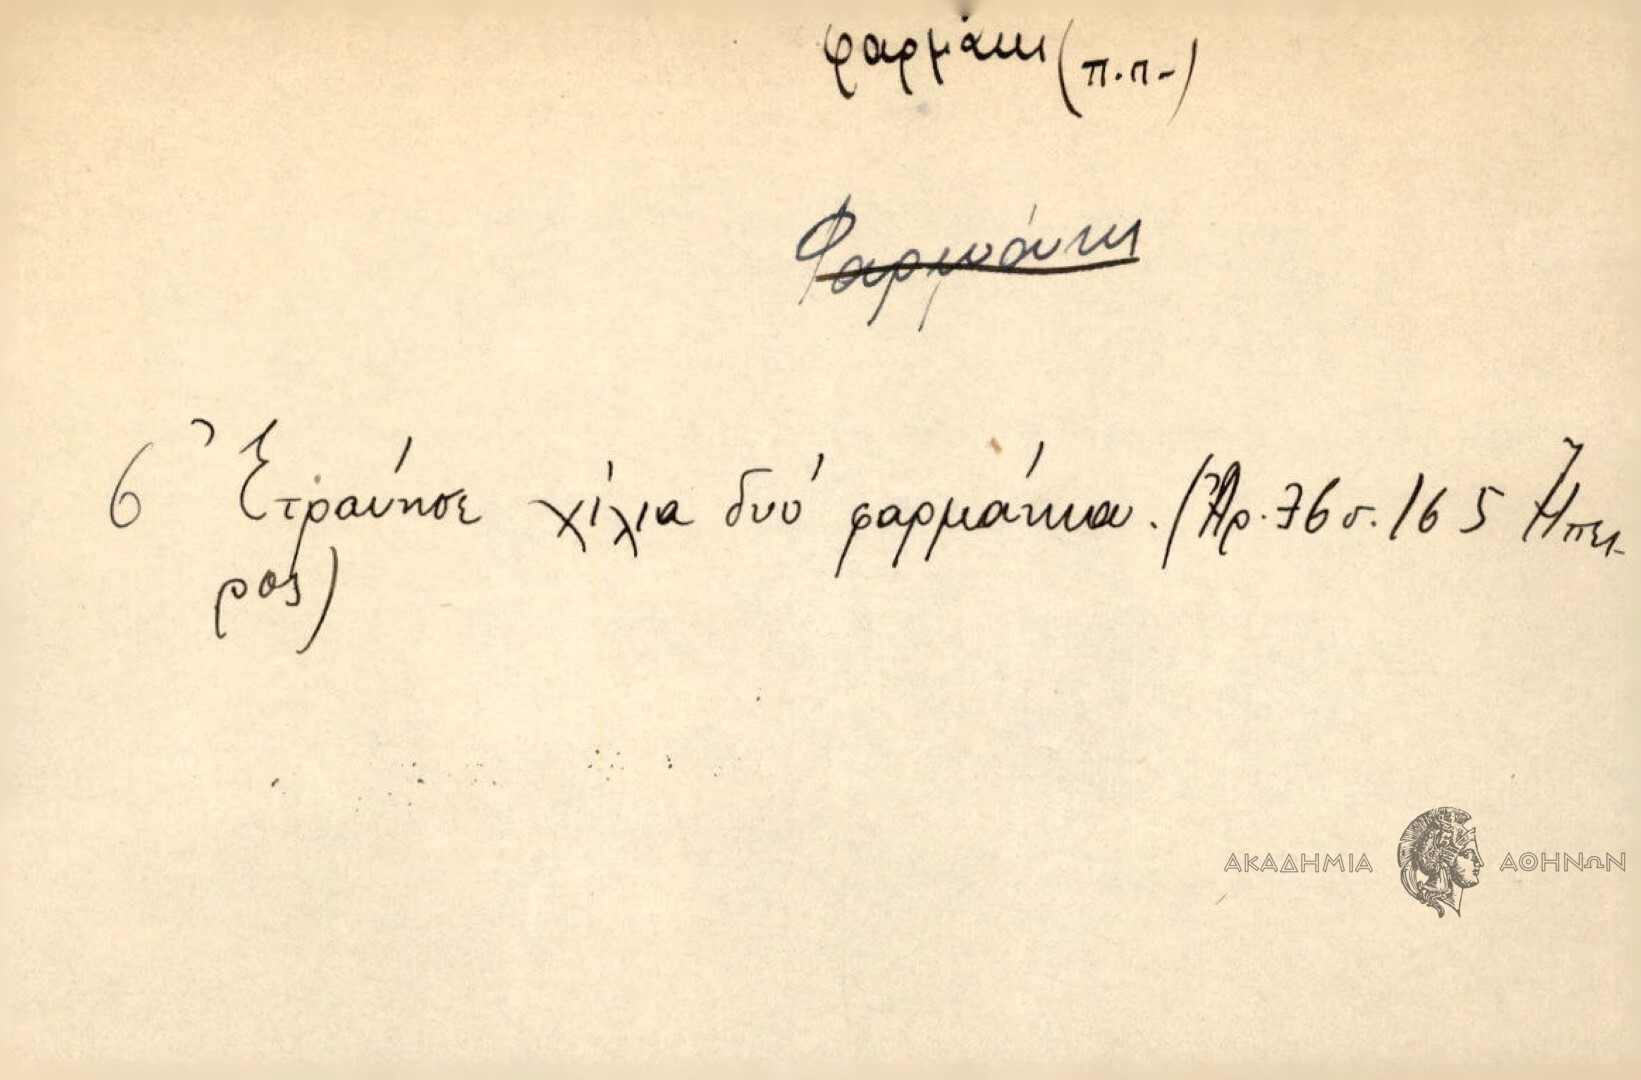 φαρμάκι (π.π.)
Φαρμάκι
6 Ἐτράυησε χίλια δυό φαρμάκια. (Ἀρ. 76 σ. 165 Ἤπει-
ρος)
ΑΚΑΔΗΜΙΑ ΑΘΗΝΩΝ